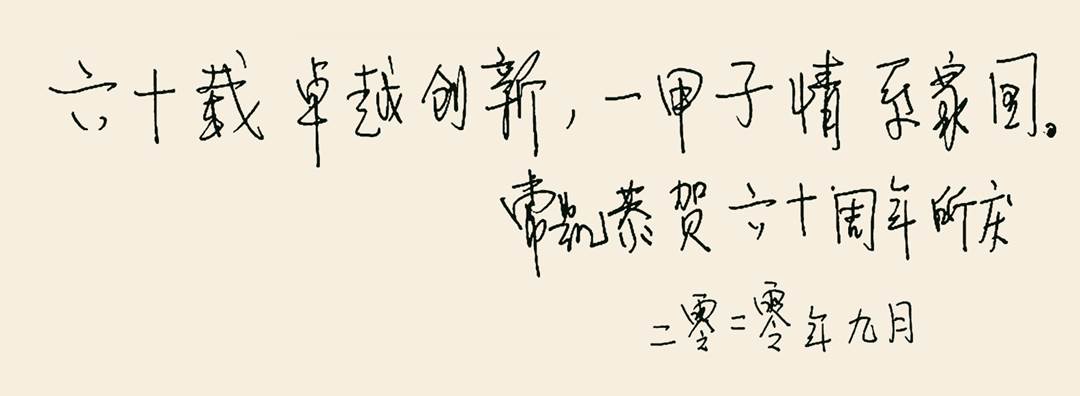 六十载卓越创新，一甲子情系家国。
常凯恭贺六十周年所庆
二零二零年九月